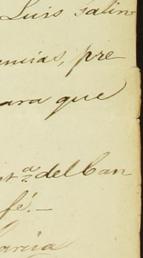 Luis Salin
encias, pre
para que
nt.a del Can
fé.—
Garcia